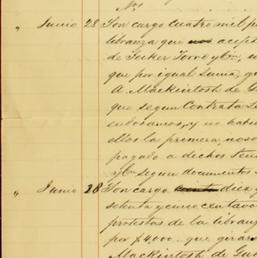 Nº 1
" Junio 28 Son cargo cuatro mil p
libranza que nos acep
de Tecker Torre y Cº,
que por igual suma, qu
A. Mackintosh de Gu
que segun Contrata
endosamos, y no habi
ellos la primera, nos
pagado a dichos Ten
segun documentos
" Junio 28 Son cargo diez y
setenta y cinco centavos
protestas de la libran
por $4,000.. que girar
Mackintosh de Gu